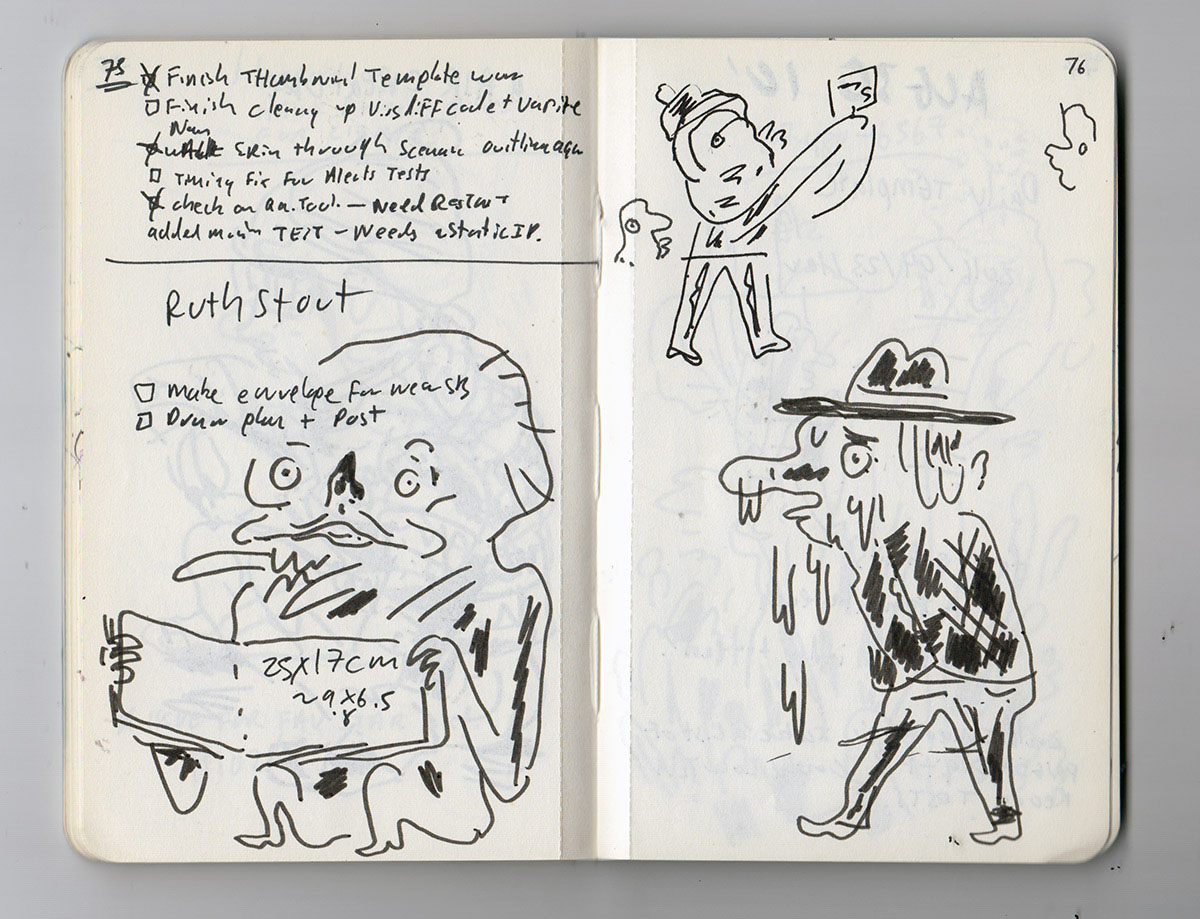 75
Finish Thumbnail Template wor
Finish cleany up Visdiff code + Varite
Nav
Skim through Scenario outline again
Timing Fix For Alerts Tests
check on qa.Tool. — Need Restart
added main TEST — Needs a Static IP.
Ruth Stout
Make envelope for
Draw plan + Post
25x17cm
~9.8x6.5
76